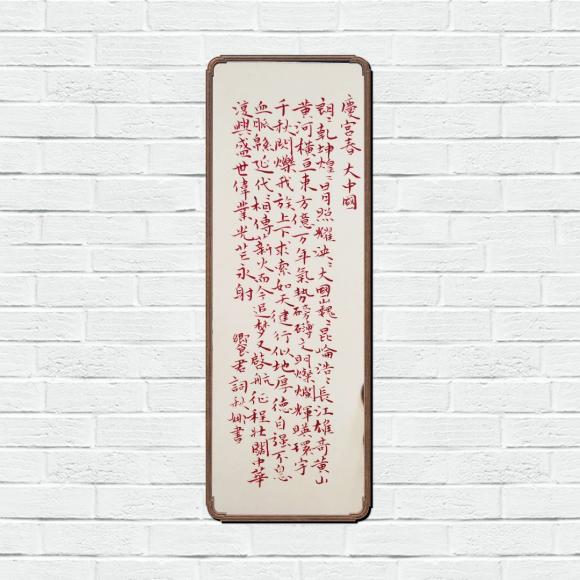 慶宮春 大中國
朗〻乾坤煌〻日月照耀泱〻大國巍〻昆崙浩〻長江雄奇黄山
黄河橫亘東方億万年氣勢磅礴文明燦爛輝暎環宇
千秋閃爍我族上下求索如天健行似地厚德自强不息
血脈緜延代〻相傳薪火而今追梦又啓航征程壯闊中華
復興盛世偉業光芒永射
卿君詞秋娜書